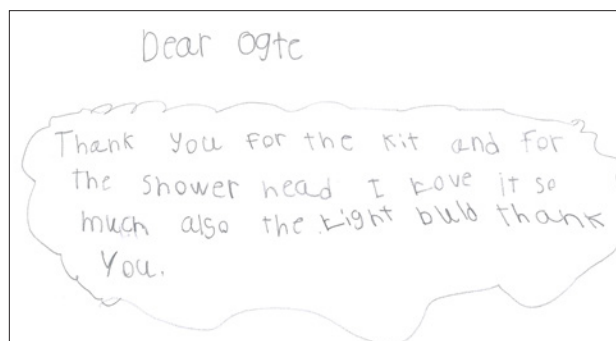 Dear Ogte
Thank you for the kit and for
the shower head I love it so
much also the light bulb thank
you.